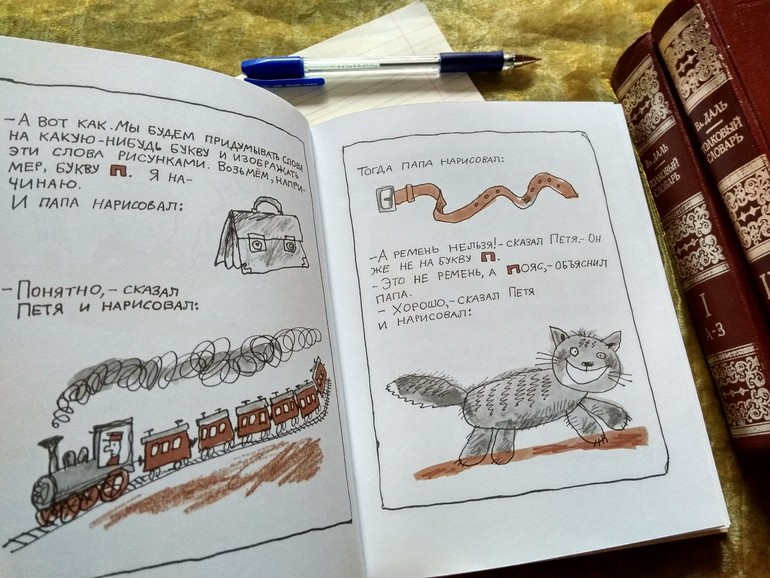 - А ВОТ КАК. МЫ БУДЕМ ПРИДУМЫВАТЬ СЛОВА
НА КАКУЮ-НИБУДЬ БУКВУ И ИЗОБРАЖАТЬ
ЭТИ СЛОВА РИСУНКАМИ. ВОЗЬМЁМ, НАПРИ-
МЕР, БУКВУ П. Я НА-
ЧИНАЮ.
И ПАПА НАРИСОВАЛ:
- ПОНЯТНО, - СКАЗАЛ
ПЕТЯ И НАРИСОВАЛ:
ТОГДА ПАПА НАРИСОВАЛ:
- А РЕМЕНЬ НЕЛЬЗЯ! - СКАЗАЛ ПЕТЯ. - ОН
ЖЕ НЕ НА БУКВУ П.
- ЭТО НЕ РЕМЕНЬ, А ПОЯС, - ОБЪЯСНИЛ
ПАПА.
- ХОРОШО, - СКАЗАЛ ПЕТЯ
И НАРИСОВАЛ:
Вл. ДАЛЬ
ТОЛКОВЫЙ
СЛОВАРЬ
I
А-З
Вл. ДАЛЬ
ТОЛКОВЫЙ
СЛОВАРЬ